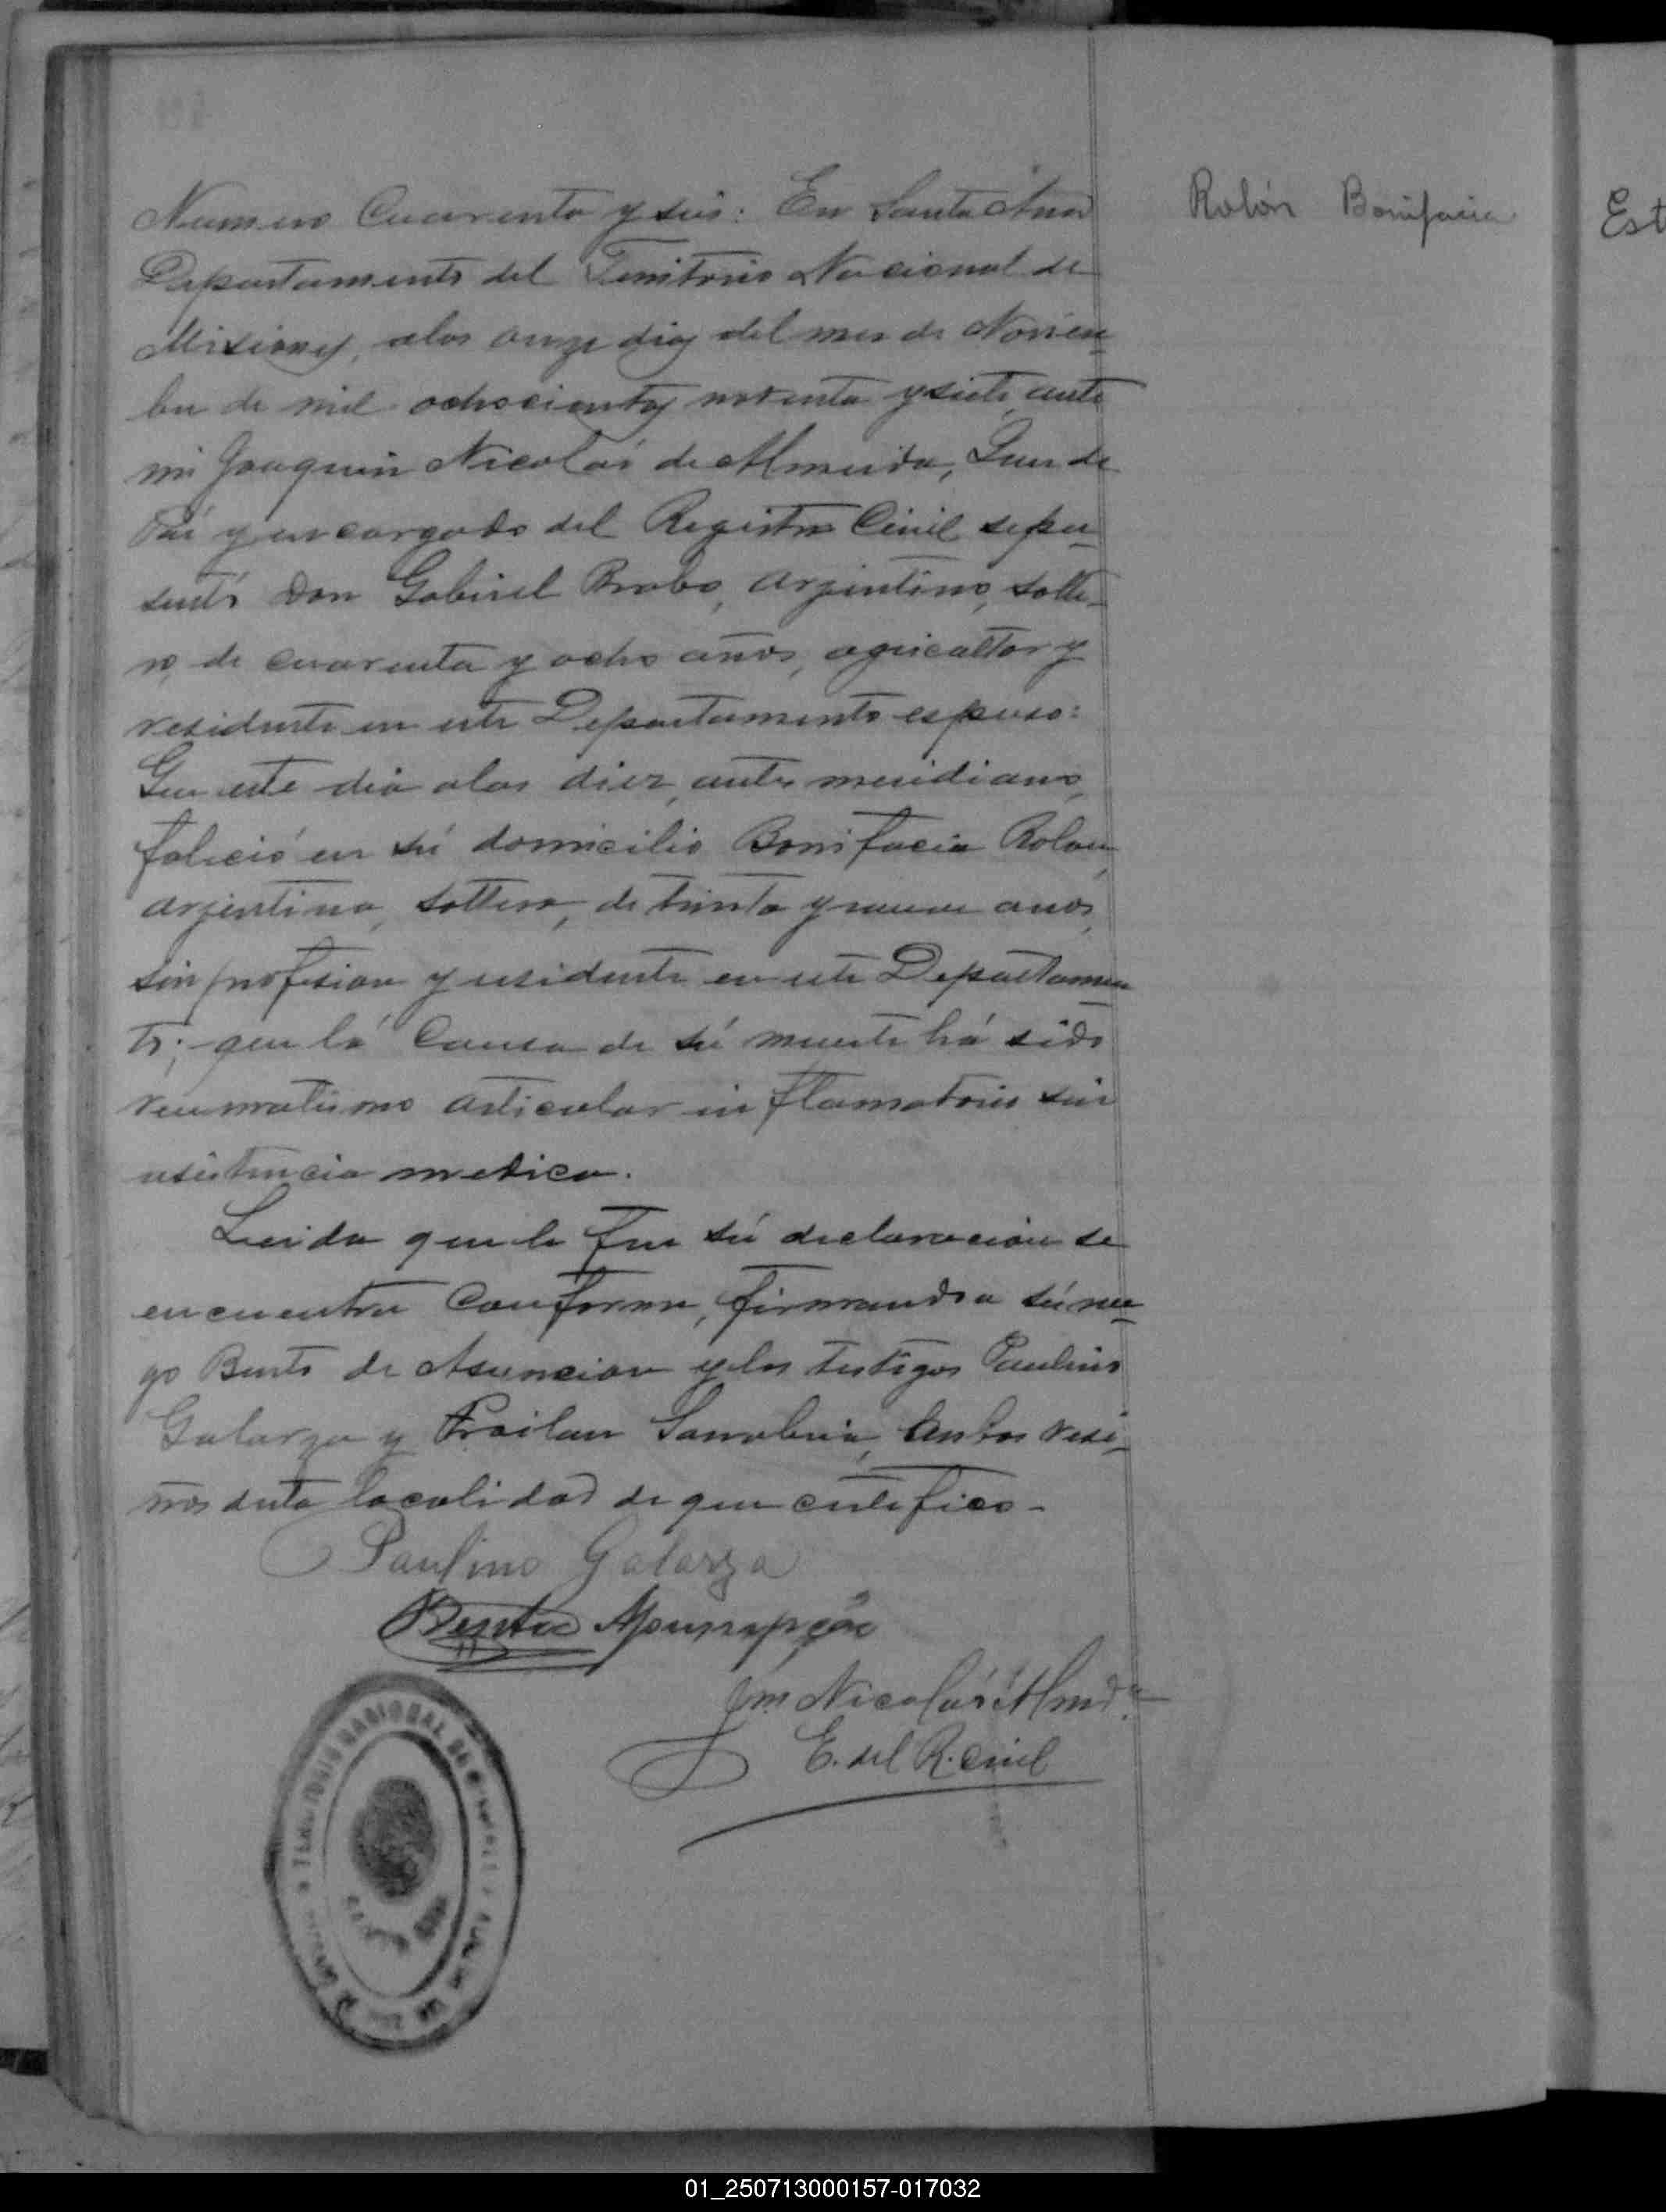 Numero Cuarenta y seis: En Santa Ana
Departamento del Territorio Nacional de
Misiones, alos onze dias del mes de Noviem-
bre de mil ochocientos noventa y siete, ante
mi Joaquin Nicolás de Almeida, Juez de
Paz y encargado del Registro Civil se pre-
sentó Don Gabriel Brabo, arjentino, solte-
ro, de cuarenta y ocho años, agricultor y
residente en este Departamento espuso:
Que este dia alas diez, ante meridiano,
falició en sú domicilio Bonifacia Rolon,
arjentina, soltera, de treinta y nueve anos,
sin profesion y residente en este Departamen
to; que lá Causa de sú muerte há sido
reumatismo articular inflamatorio sin
asistencia medica.
Leida que le fue sú declaracion se
encuentra Conforme, firmando a sú rue-
go Bento de Asuncion y los testigos Paulino
Galarza y Froilan Sanabria, Ambos vesi-
nos desta localidad de que certifico-
Paulino Galarza
Bento Assumpção
Jm Nicolás Almda
E. del R. Civil
Rolón Bonifacia
Est
TERRITORIO NACIONAL DE MISIONES
01_250713000157-017032